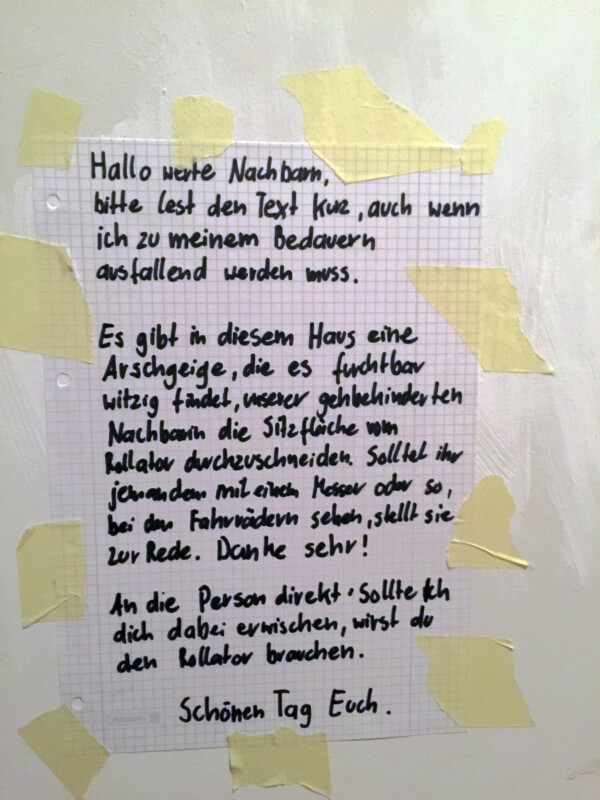 Hallo werte Nachbarn,
bitte lest den Text kurz, auch wenn
ich zu meinem Bedauern
ausfallend werden muss.
Es gibt in diesem Haus eine
Arschgeige, die es furchtbar
witzig findet, unserer gehbehinderten
Nachbarin die Sitzfläche vom
Rollator durchzuschneiden. Solltet ihr
jemandem mit einem Messer oder so,
bei den Fahrrädern sehen, stellt sie
zur Rede. Danke sehr!
An die Person direkt: Sollte ich
dich dabei erwischen, wirst du
den Rollator brauchen.
Schönen Tag Euch.